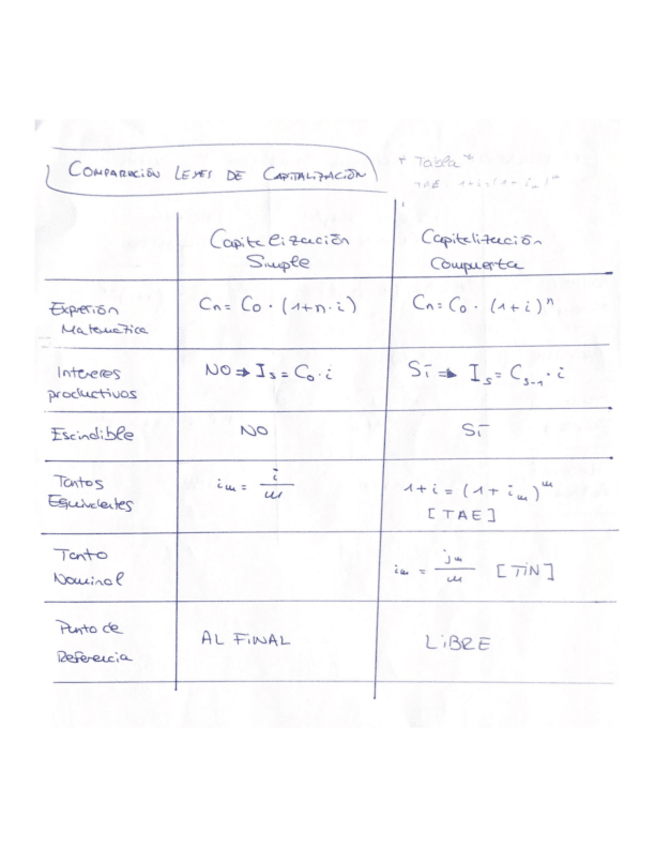 COMPARACIÓN LEYES DE CAPITALIZACIÓN
+ Tabla
TAE 1+i=(1+im)^m
Capitalización Simple
Capitalización Compuesta
Expresión Matemática
Cn = Co · (1+n·i)
Cn = Co · (1+i)^n
Intereses productivos
NO ⇒ Is = Co · i
SÍ ⇒ Is = Cs-1 · i
Escindible
NO
SÍ
Tantos Equivalentes
im = i/m
1+i = (1+im)^m
[TAE]
Tanto Nominal
im = jm/m [TiN]
Punto de Referencia
AL FINAL
LIBRE